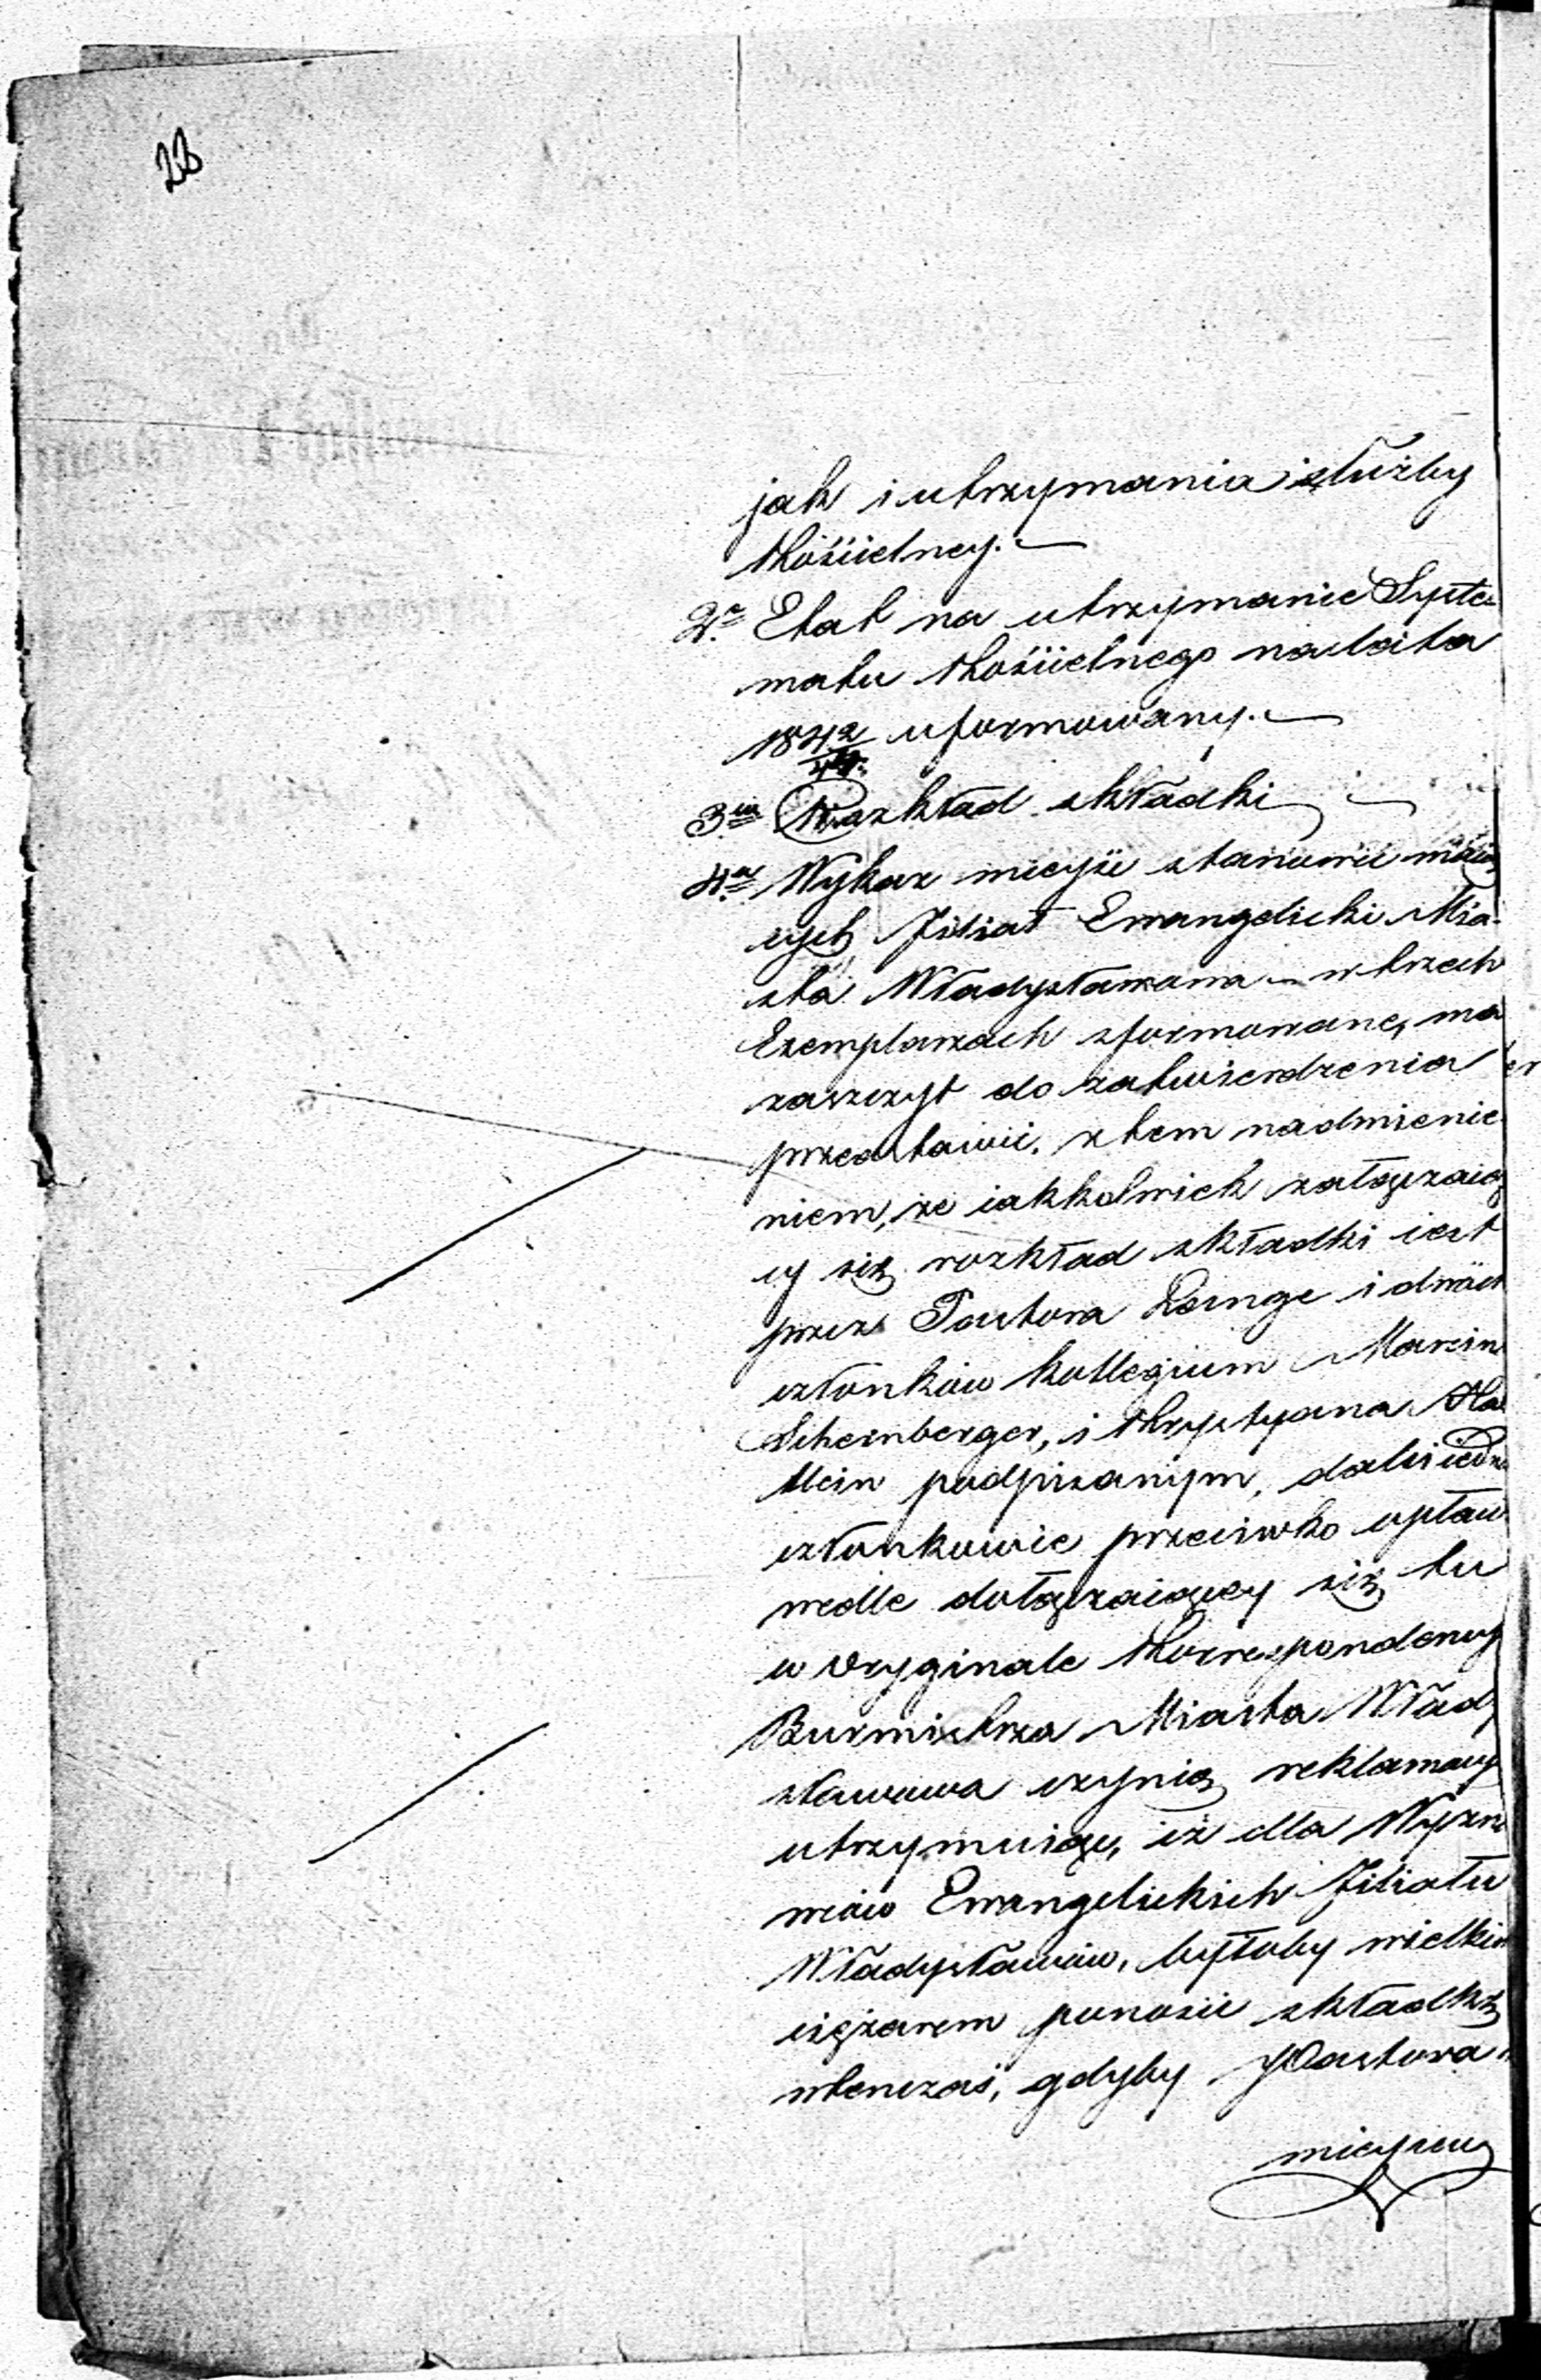 22
jak i utrzymania służby
Kościelney. —
2e Etat na utrzymanie Syste-
matu Kościelnego na lata
1842/47 uformowany. —
3ci Rozkład składki —
4e Wykaz mieysc stanowić maią
cych Filiał Ewangelicki Mia-
sta Władysławowa — w trzech
Exemplarzach sformowane, ma
zaszczyt do zatwierdzenia
przedstawić, z tem nadmienie
niem, że iakkolwiek załączaią
cy się rozkład składki iest
przez Pastora Lange i dwóch
członków Kollegium Marcin
Schernberger, i Krystyana
podpisanym, dalsi iedna
członkowie przeciwko opłaci
wedle dołączaiącey się tu
w oryginale Korrespondencyi
Burmistrza Miasta Włady
sławowa czynią reklamacyą
utrzymuiąc, iż dla Wyzna
wców Ewangelickich Filiału
Władysławów, byłoby wielkim
ciężarem ponosić składkę
wtenczas, gdyby Pastora
mieyscu